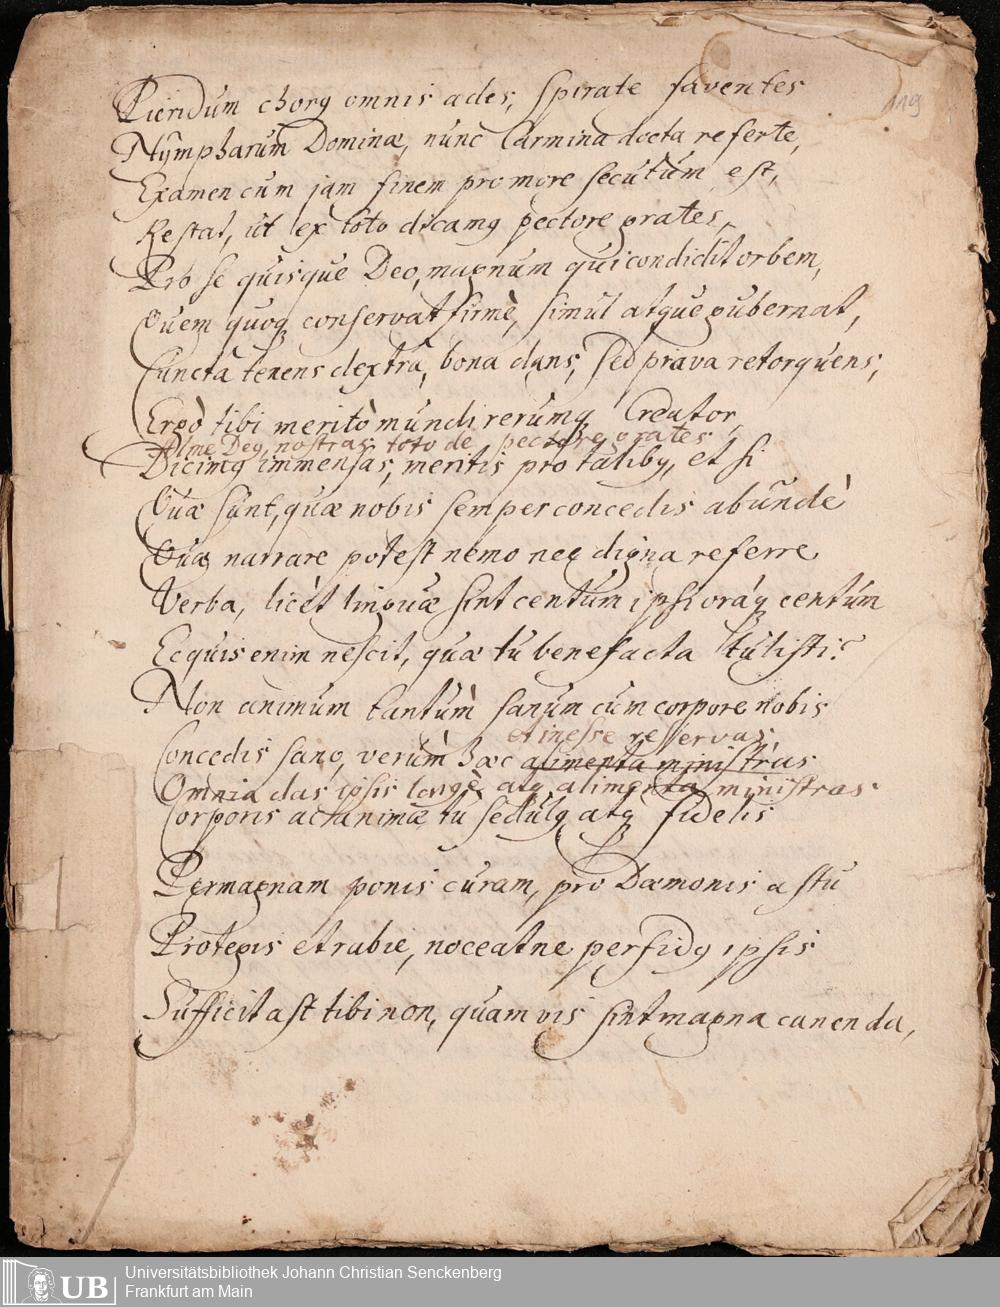 119
Pieridum chorq omnis ades, spirate faventes
Nÿmpharum Dominæ, nunc Carmina docta referte,
Examen cum jam finem pro more secutum est,
Restat, ut ex toto dicamq pectore grates,
Pro se quisque Deo, magnum qui condidit orbem,
Quem quoq conservat firmè, simul atque gubernat,
Cuncta tenens dextra, bona dans, sed prava retorquens,
Ergò tibi meritò mundi rerumq Creator,
Alme Deq nostras toto de pectore grates
Dicimq immensas, meritis pro talibq, et si
Quæ sunt, quæ nobis semper concedis abundè
Quæ narrare potest nemo nec digna referre
Verba, licèt linguæ sint centum ipsi oraq centum
Ecquis enim nescit, quæ tu benefacta tulisti?
Non animum tantùm sanum cum corpore nobis
et inesse reservas
Concedis sano, verùm hæc alimenta ministras
Omnia das ipsis longè atq alimenta ministras
Corporis ac animæ tu sedulq atq fidelis
Permagnam ponis curam, pro Dæmonis astu
Protegis et rabie, noceat ne perfidq ipsis
Sufficit ast tibi non, quamvis sint magna canenda,
UB
Universitätsbibliothek Johann Christian Senckenberg
Frankfurt am Main